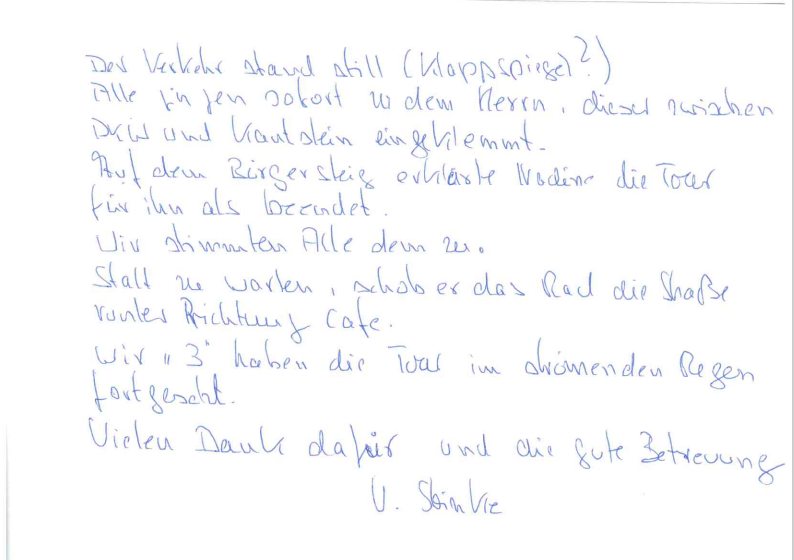 Der Verkehr stand still (Klappspiegel?)
Alle gingen sofort zu dem Herrn, dieser zwischen
und Kantstein eingeklemmt.
Auf dem Bürgersteig erklärte Nadine die Tour
für ihn als beendet.
Wir stimmten Alle dem zu.
Statt zu warten, schob er das Rad die Straße
runter Richtung Cafe.
Wir "3" haben die Tour im strömenden Regen
fortgesetzt.
Vielen Dank dafür und die gute Betreuung
U.